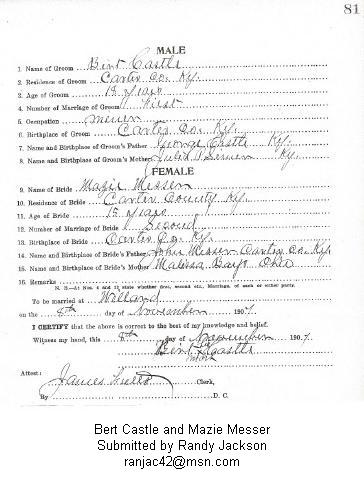 81
MALE
1. Name of Groom Bert Castle
2. Residence of Groom Carter Co. Ky.
3. Age of Groom 18 years
4. Number of Marriage of Groom First
5. Occupation
6. Birthplace of Groom Carter Co. Ky.
7. Name and Birthplace of Groom's Father George Castle Ky.
8. Name and Birthplace of Groom's Mother Ky.
FEMALE
9. Name of Bride Mazie Messer
10. Residence of Bride Carter County Ky.
11. Age of Bride 15 years
12. Number of Marriage of Bride Second
13. Birthplace of Bride Carter Co. Ky.
14. Name and Birthplace of Bride's Father John Messer Carter Co. Ky.
15. Name and Birthplace of Bride's Mother Malissa Ohio
16. Remarks
N. B.—At Nos. 4 and 12 state whether first, second etc., Marriage, of each or either party.
To be married at Willard
on the 8th day of November 190
I CERTIFY that the above is correct to the best of my knowledge and belief.
Witness my hand, this 8th day of November 190
Bert Castle
mark
Attest:
James Clerk,
By D. C.
Bert Castle and Mazie Messer
Submitted by Randy Jackson
ranjac42@msn.com